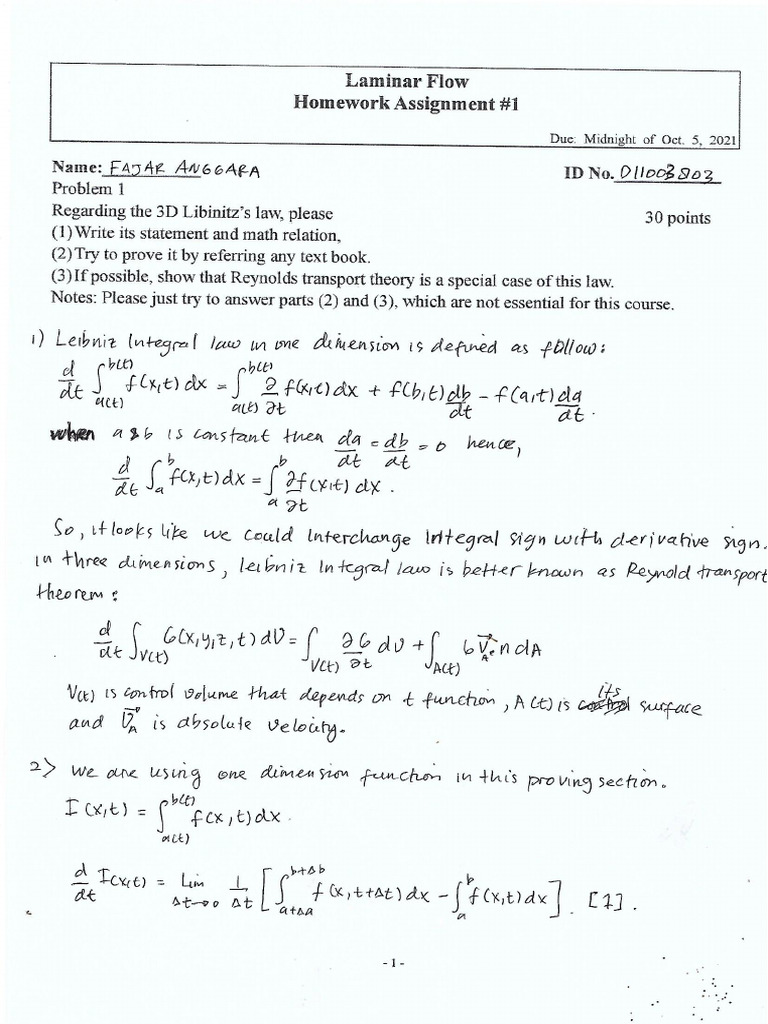 Laminar Flow
Homework Assignment #1
Due: Midnight of Oct. 5, 2021
Name: FAJAR ANGGARA ID No. D11003803
Problem 1
Regarding the 3D Libinitz's law, please 30 points
(1) Write its statement and math relation,
(2) Try to prove it by referring any text book.
(3) If possible, show that Reynolds transport theory is a special case of this law.
Notes: Please just try to answer parts (2) and (3), which are not essential for this course.
1) Leibniz Integral law in one dimension is defined as follow:
d/dt ∫_{a(t)}^{b(t)} f(x,t) dx = ∫_{a(t)}^{b(t)} ∂/∂t f(x,t) dx + f(b,t) db/dt - f(a,t) da/dt.
when a & b is constant then da/dt = db/dt = 0 hence,
d/dt ∫_a^b f(x,t) dx = ∫_a^b ∂f/∂t (x,t) dx.
So, it looks like we could Interchange Integral sign with derivative sign.
In three dimensions, leibniz Integral law is better known as Reynold transport
theorem:
d/dt ∫_{V(t)} G(x,y,z,t) dV = ∫_{V(t)} ∂G/∂t dV + ∫_{A(t)} G V⃗_A · n dA
V(t) is control volume that depends on t function, A(t) is its surface
and V⃗_A is absolute velocity.
2) we are using one dimension function in this proving section.
I(x,t) = ∫_{a(t)}^{b(t)} f(x,t) dx.
d/dt I(x,t) = Lim_{Δt→0} 1/Δt [∫_{a+Δa}^{b+Δb} f(x,t+Δt) dx - ∫_a^b f(x,t) dx]. [1].
- 1 -